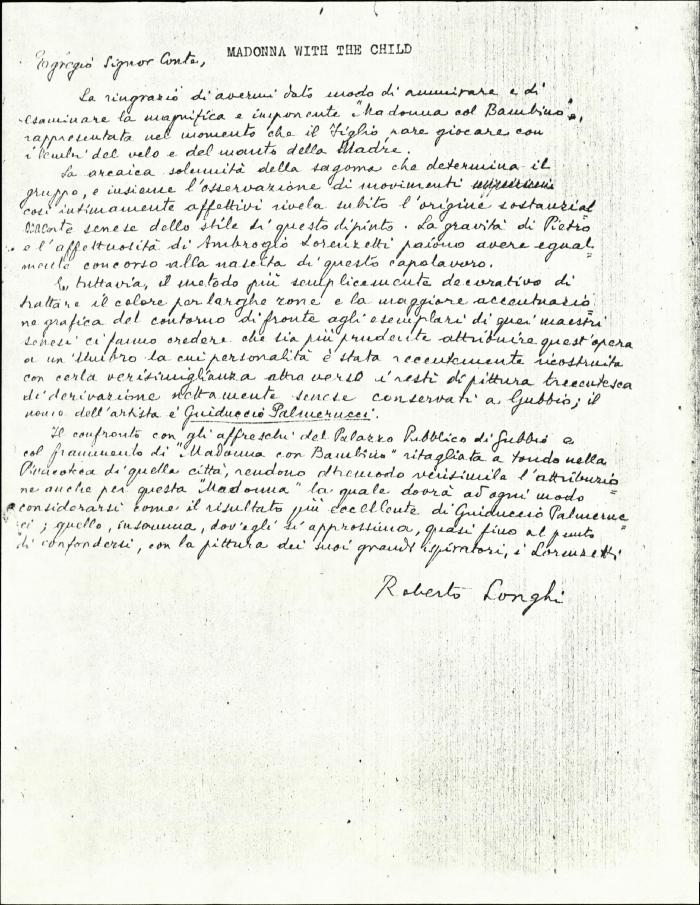 MADONNA WITH THE CHILD
Egregio Signor Conte,
La ringrazio di avermi dato modo di ammirare e di
esaminare la magnifica e imponente "Madonna col Bambino",
rappresentata nel momento che il Figlio pare giocare con
i lembi del velo e del manto della Madre.
La arcaica solennità della sagoma che determina il
gruppo, e insieme l'osservazione di movimenti
così intimamente affettivi rivela subito l'origine sostanzial
mente senese dello stile di questo dipinto. La gravità di Pietro
e l'affettuosità di Ambrogio Lorenzetti paiono avere egual=
mente concorso alla nascita di questo capolavoro.
E, tuttavia, il metodo più semplicemente decorativo di
trattare il colore per larghe zone e la maggiore accentuazio=
ne grafica del contorno di fronte agli esemplari di quei maestri
senesi ci fanno credere che sia più prudente attribuire quest'opera
a un'umbro la cui personalità è stata recentemente ricostruita
con certa verisimiglianza attraverso i resti di pittura trecentesca
di derivazione nettamente senese conservati a Gubbio; il
nome dell'artista è Guiduccio Palmerucci.
Il confronto con gli affreschi del Palazzo Pubblico di Gubbio e
col frammento di "Madonna con Bambino" ritagliata a tondo nella
Pinacoteca di quella città, rendono oltremodo verisimile l'attribuzio=
ne anche per questa "Madonna" la quale dovrà ad ogni modo
considerarsi come il risultato più eccellente di Guiduccio Palmeruc=
ci; quello, insomma, dov'egli si approssima, quasi fino al punto
di confondersi, con la pittura dei suoi grandi ispiratori, i Lorenzetti
Roberto Longhi